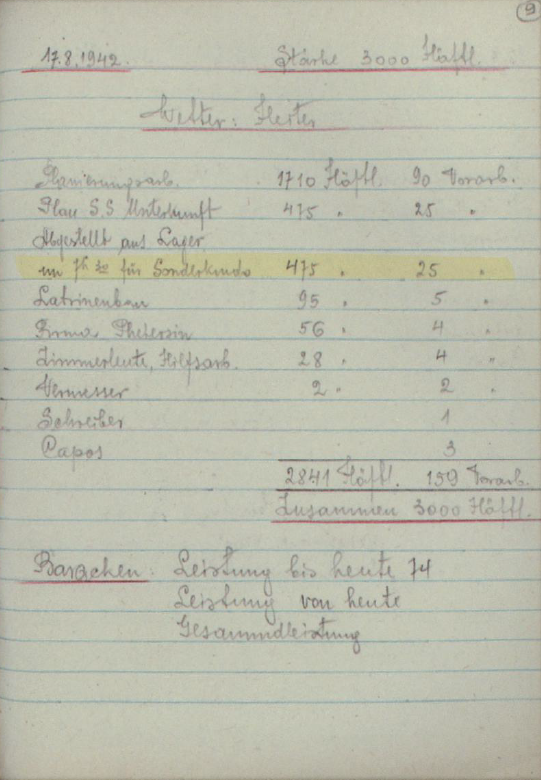 9
17.8.1942. Stärke 3000 Häftl.
Wetter: Heiter
Planierungsarb. 1710 Häftl. 90 Vorarb.
Plau S.S Unterkunft 475 " 25 "
Abgestellt aus Lager
um für Sonderkmdo 475 " 25 "
Latrinenbau 95 " 5 "
Firma 56 " 4 "
Zimmerleute, Hilfsarb. 28 " 4 "
Vermesser 2 " 2 "
Schreiber 1
Capos 3
2841 Häftl. 159 Vorarb.
Zusammen 3000 Häftl.
Barachen: Leistung bis heute 74
Leistung von heute
Gesammdleistung